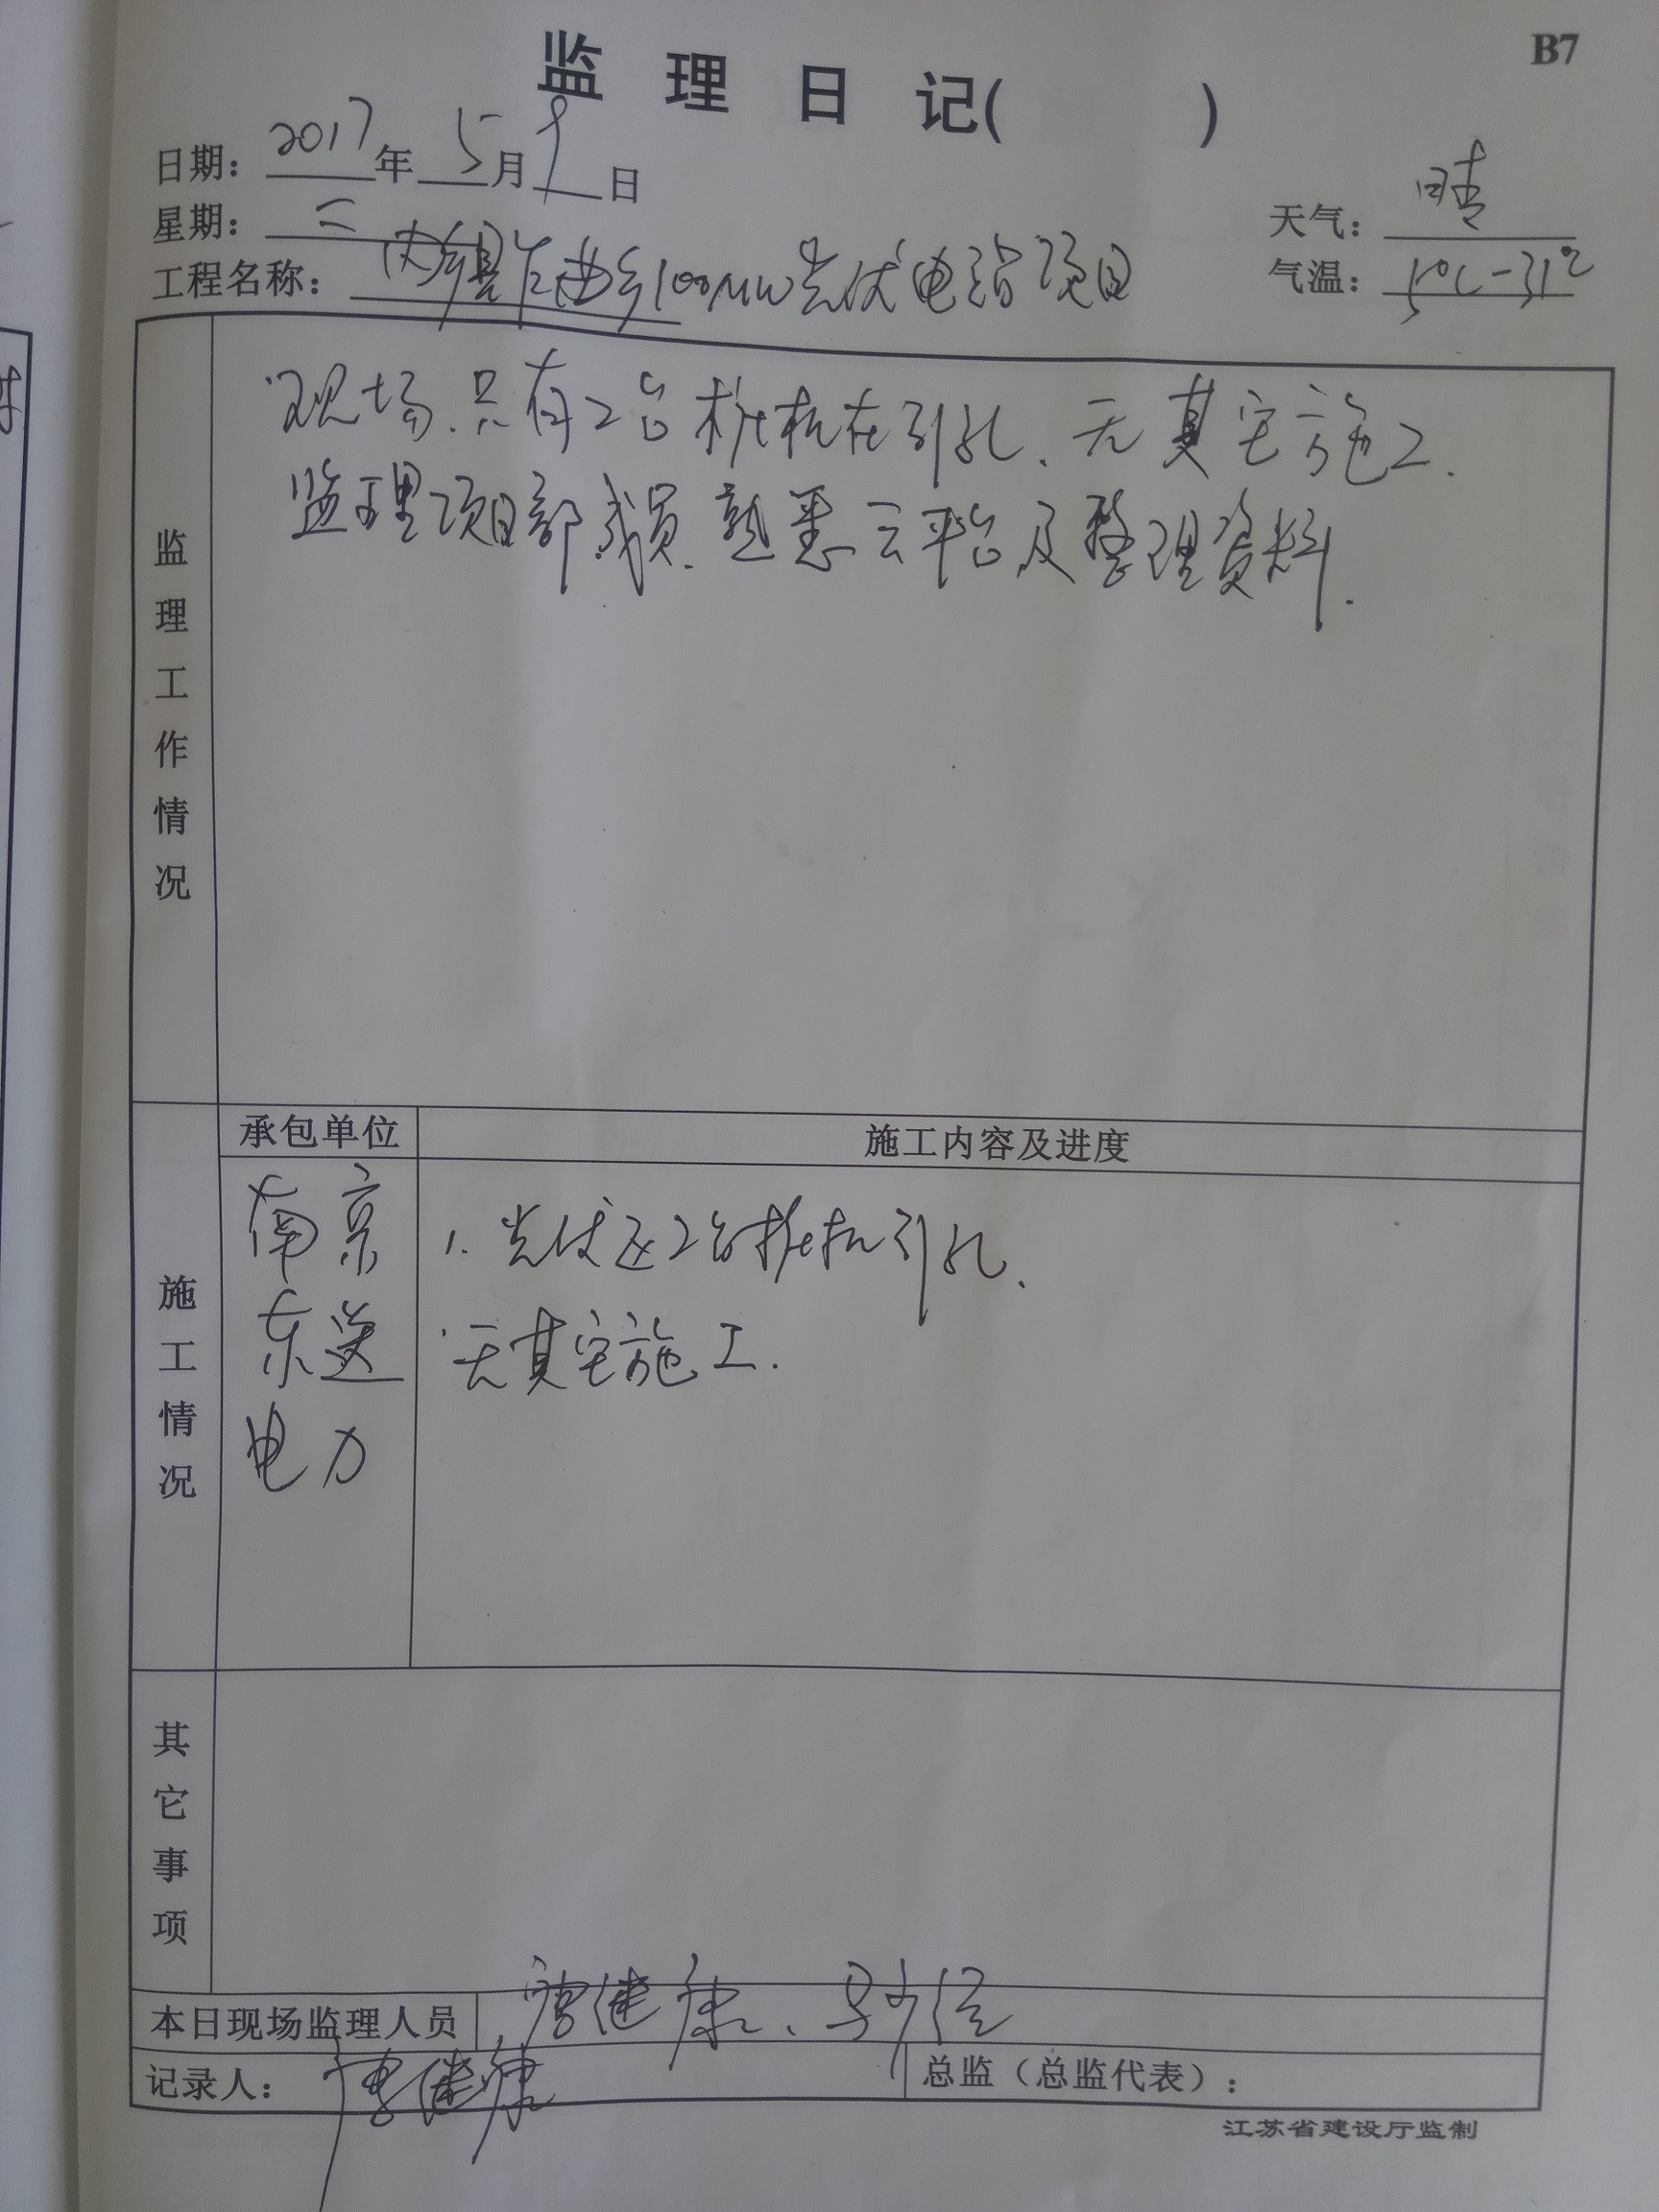 B7
监理日记( )
日期: 2017年5月9日
星期: 二
天气: 晴
工程名称: 县乍曲乡100MW光伏电站项目
气温: 5℃-31℃
现场.只有2台桩机在引孔.无其它施工.
监理项目部成员.熟悉云平台及整理资料.
监理工作情况
承包单位 施工内容及进度
南京 1.光伏区2台桩机引孔.
东送 无其它施工.
电力
施工情况
其它事项
本日现场监理人员 唐健康、
记录人: 唐健康 总监(总监代表):
江苏省建设厅监制